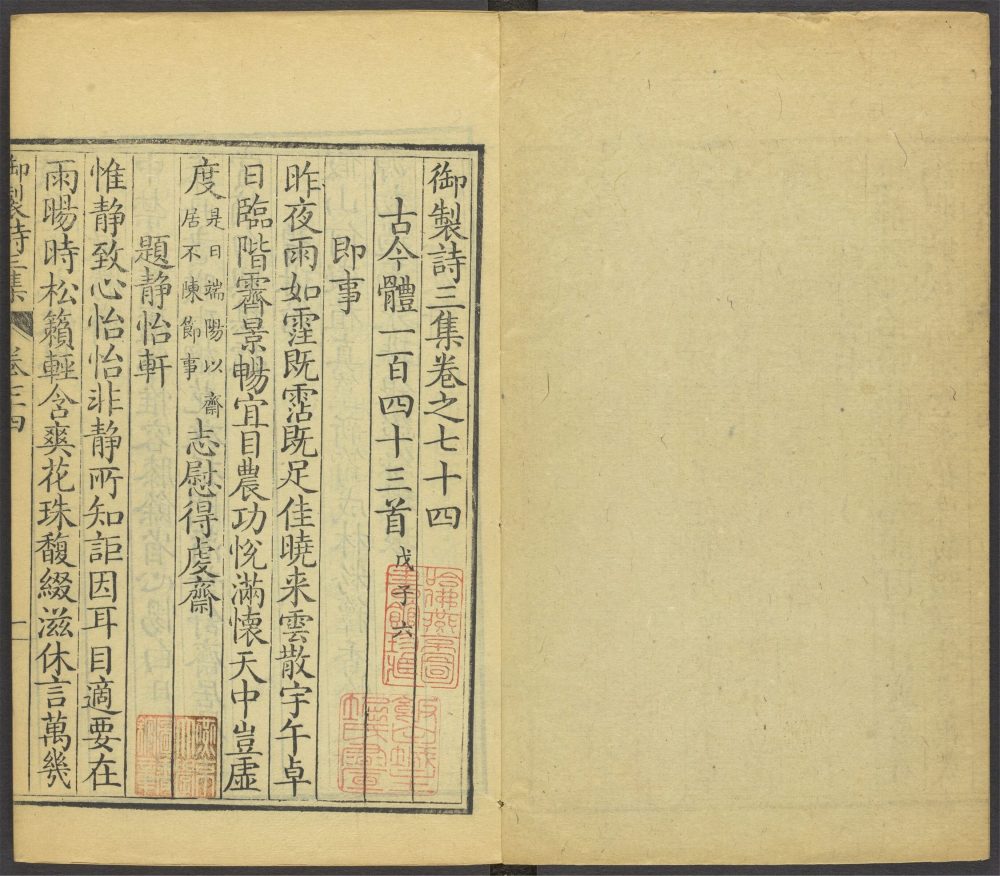 御製詩三集卷之七十四
古今體一百四十三首 戊子六
即事
昨夜雨如霔既霑既足佳曉来雲散宇午卓
日臨階霽景暢宜目農功恱滿懷天中豈虛
度是日端陽以齋居不陳節事志慰得虔齋
題静怡軒
惟静致心怡怡非静所知詎因耳目適要在
雨暘時松籟輕含爽花珠馥綴滋休言萬幾
御製詩三集 卷七十四 一
哈佛燕京圖書館珍藏